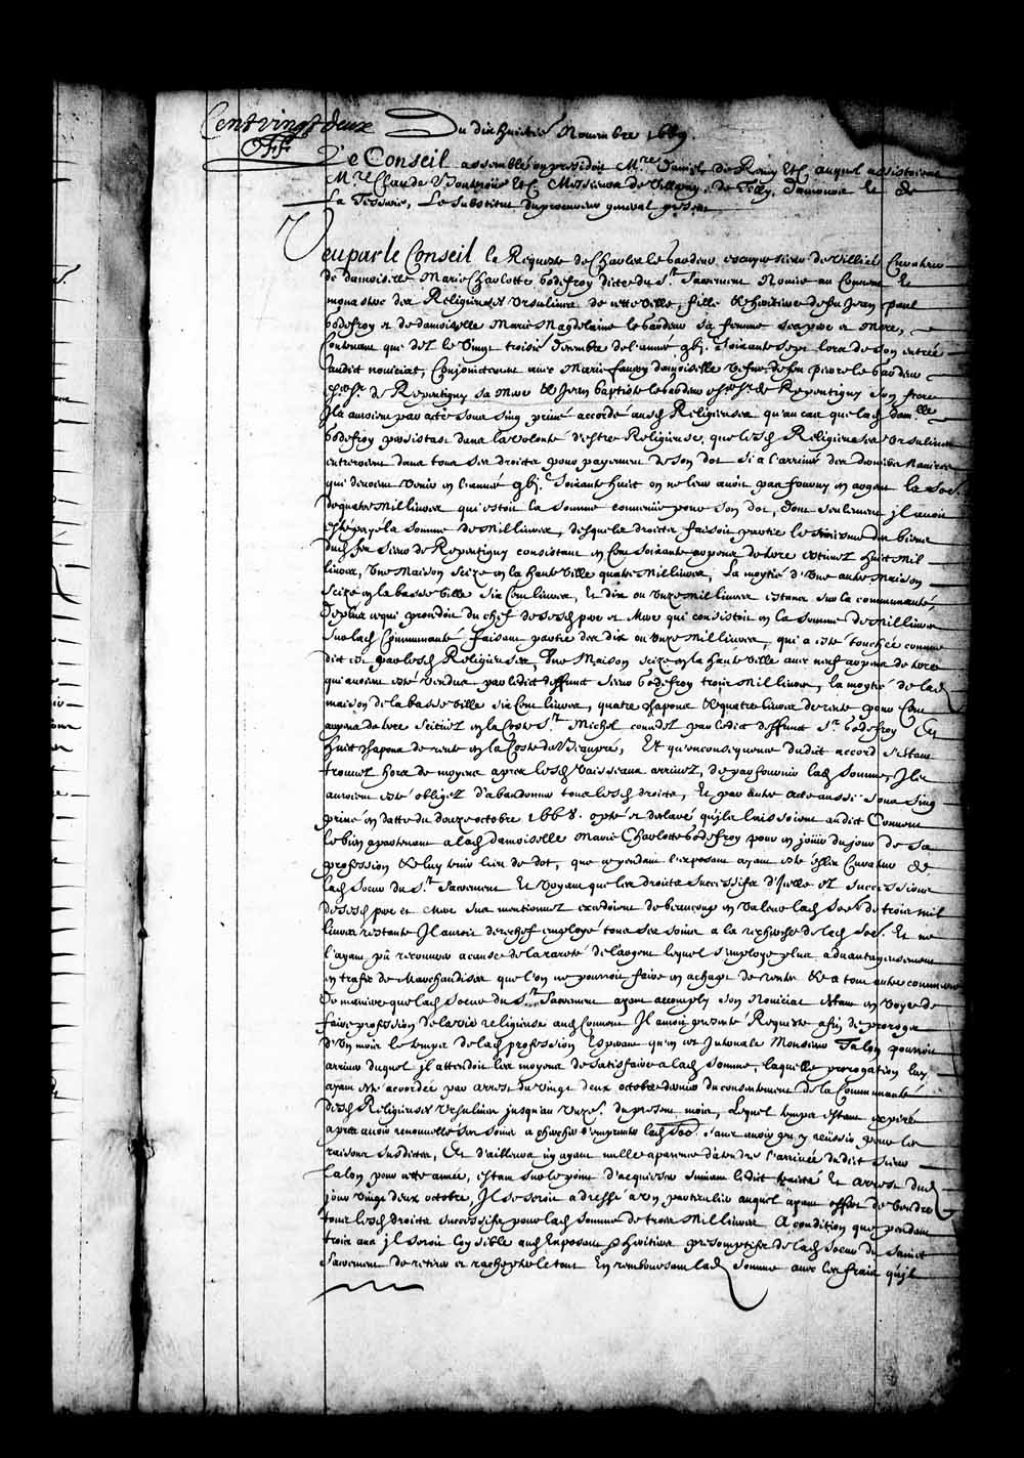 Cent vingt deux Du dix huictie Nouembre 1669.
Off.
Le Conseil assemblé ou presidoit M.re Daniel de Remy Etc auquel assistoient
M.re Claude Bouteroüe Etc. Messieurs de Villeray, de Tilly, Damours Et de
La Tesserie, Le Substitut du procureur general present
Veu par le Conseil la Requeste de Charles le Gardeur escuyer sieur de Villiers Curateur
de damoiselle Marie Charlotte Godefroy dicte du S.t Sacrement Nouice au Conuent Et
monastere des Religieuses Ursulines de cette ville, fille & heritiere de feu Jean paul
Godefroy et de damoiselle Marie Magdelaine le Gardeur sa femme ses pere et Mere,
Contenant que dez le vingt troisie decembre de l'année gbj.c soixante sept lors de son entrée
audict nouiciat, Conjoinctement auec Marie fauery damoiselle vefue de feu pierre le Gardeur
de Repentigny sa Mere & Jean Baptiste le Gardeur de Repentigny son frere
Ils auroient par acte sous sing priué accordé ausd Religieuses qu'au cas que lad dam.lle
Godefroy persistast dans la volonté d'estre Religieuse, que lesd Religieuses Ursulines
entreroient dans tous ses droicts pour payement de son dot si a l'arriuée des derniers Nauires
qui deuoient venir en l'année gbj.c soixante huict on ne leur auoit pas fourny en argent la so.e
de quatre Mil liures qui estoit la somme conuenüe pour son dot, dont seulement jl auoit
esté payé la somme de Mil liures, desquels droicts faisoit partie le tiers des biens
dud feu sieur de Repentigny consistant en Cent soixante arpens de terre estimez huict mil
liures, Vne Maison seize en la haute ville quatre Mil liures, La moytié d'Vne autre Maison
seize en la basse ville six Cent liures, Et dix ou vnze Mil liures estans sur la communauté,
De plus ce qui prouenoit du chef de sesd pere et Mere qui consistoit en la somme de Mil liures
sur lad Communauté faisant partie des dix ou vnze Mil liures, qui a esté touchée comme
dict est par lesd Religieuses, Vne Maison seize en la haute ville auec neuf arpens de terre
qui auoient esté vendus par ledict deffunct sieur Godefroy trois Mil liures, la moytié de lad
maison de la basse ville six Cent liures, quatre chapons & quatre liures de rente pour Cent
arpens de terre scituez en la Coste S.t Michel concedez par ledict deffunct S.r Godefroy Et
huict chapons de rente en la Coste de Beaupré, Et qu'en consequence dudict accord s'estant
trouuez hors de moyens apres lesd Vaisseaux arriuez, de parfournir lad somme, Ils
auroient esté obligez d'abandonner tous lesd droicts, Et par autre acte aussi sous sing
priué en datte du douze octobre 1668. opté et declaré qu'ils laissoient audict Conuent
le bien apartenant a lad damoiselle Marie Charlotte Godefroy pour en joüir du jour de sa
profession & luy tenir lieu de dot, que cependant l'exposant ayant esté esleu Curateur de
lad soeur du S.t Sacrement Et voyant que les droicts successifs d'Icelle et successions
de sesd pere et Mere sus mentionnez excedoient de beaucoup en valeur lad so.e de trois mil
liures restante Il auroit derechef employé tous ses soins a la recherche de lad so.e Et ne
l'ayant pû recouurer a cause de la rareté de l'argent lequel s'employe plus aduantageusement
en trafic de Marchandises que l'on ne pouuoit faire en achapt de rentes & a tout autre commerce
De maniere que lad soeur du S.t Sacrement ayant accomply son Nouiciat Estant en voye de
faire profession de la vie religieuse aud Conuent Il auroit presenté Requeste afin de proroger
d'Vn mois le temps de lad profession Esperant qu'en cet Interuale Monsieur Talon pourroit
arriuer duquel jl attendoit les moyens de satisfaire a lad somme, laquelle prorogation luy
ayant esté accordée par arrest du vingt deux octobre dernier du consentement de la Communauté
desd Religieuses Ursulines jusqu'au vnze.e du present mois, Lequel temps estant expiré
apres auoir renouuellé ses soins a chercher d'emprunter lad so.e sans auoir pu y reüssir pour les
raisons susdictes, Et d'ailleurs n'y ayant nulle aparence d'atendre l'arriuée dudict sieur
Talon pour cette année, estant sur le point d'acquiesser suiuant ledict traicté Et arrest dud
jour vingt deux octobre, Il se seroit adressé a vn particulier auquel ayant offert de vendre
tous lesd droicts successifs pour lad somme de trois Mil liures A condition que pendant
trois ans jl seroit loysible aud Exposant & heritiers presomptifs de lad soeur du sainct
Sacrement de retirer et rachepter le tout En remboursant lad somme auec les fraix qu'jl